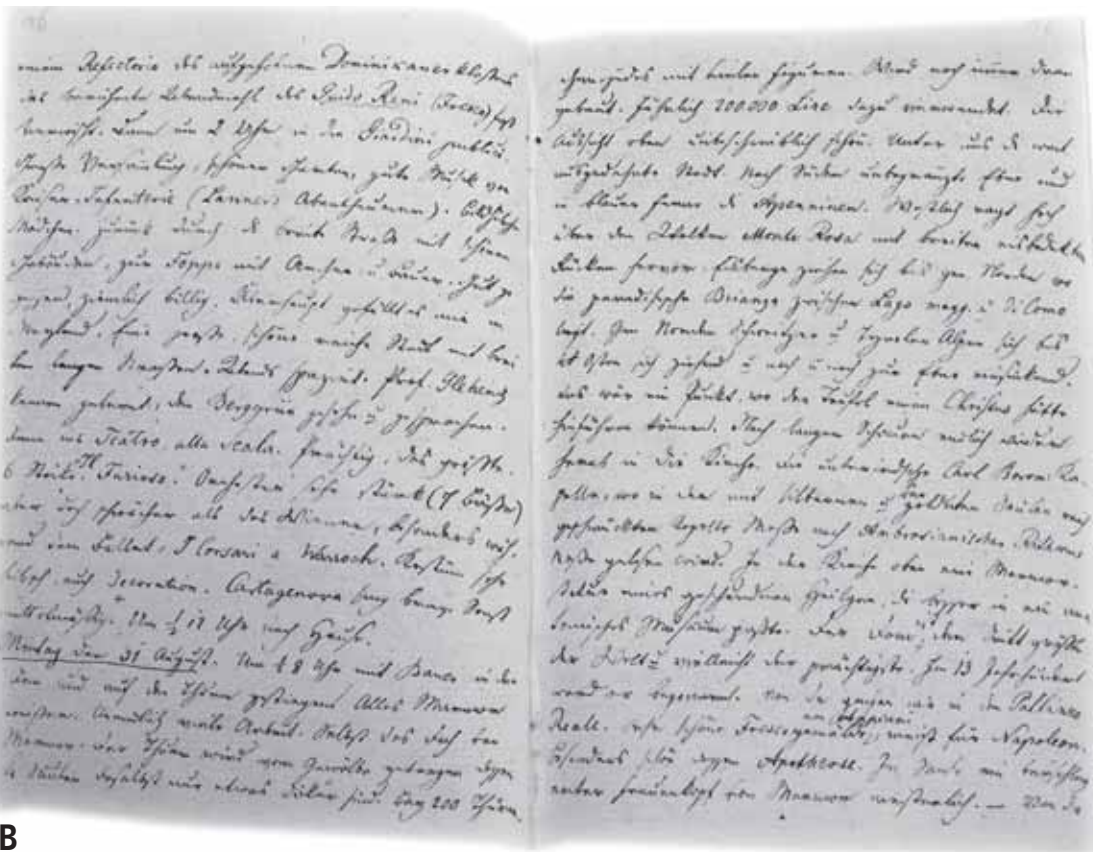 einem Refectorio des aufgehobenen Dominikanerklosters
das berühmte Abendmahl des Guido Reni (Fresco) fast
verwischt. Dann um 2 Uhr in die Giardini publici.
Große Versammlung, schöner Garten, gute Musik von
Kaiser-Infanterie (Lanners Abentheurer). Bildschöne
Mädchen. Zurück durch die breite Straße mit schönen
Gebäuden, zur Foppa mit Ancher u. Bauer. Gut ge
gessen, ziemlich billig. Überhaupt gefällt es mir in
Mayland. Eine große, schöne reiche Stadt mit brei
ten langen Strassen. Abends spaziert. Prof.
kennen gelernt, den Berggrün gesehn u. gesprochen.
Dann ins Teatro alla Scala. Prächtig, das größte.
6 Stocke. "Il Furioso". Orchester sehr stark (7 Bässe)
aber doch schwächer als das Wiener, besonders
und dem Ballet, I Corsari a Kostüm sehr
hübsch, auch Decoration. Cartagenova sang brav. Sonst
mittelmäßig. Um ½ 12 Uhr nach Haus.
Montag den 31 August. Um ½ 8 Uhr mit Bauer in den
Dom und auf den Thurm gestiegen. Alles Marmor
Unendlich viele Arbeit. Selbst das Dach von
Marmor. Der Thurm wird vom Gewölbe getragen
die Säulen deshalb nur etwas dicker sind. Bey 200 Thürm
chen jedes mit vielen Figuren. Wird noch immer dran
gebaut. Jährlich 200.000 Lire dazu verwendet. Die
Aussicht oben unbeschreiblich schön. Unter uns die weit
ausgedehnte Stadt. Nach Süden unbegrenzte Ebne und
in blauer Ferne die Apenninen. Westlich ragt hoch
über den Wolken Monte Rosa mit breiten eisbedeckten
Rücken hervor. Eisberge ziehen sich bis gen Norden wo
die paradisische Brianza zwischen Lago magg. u. di Como
liegt. Gen Norden Schweitzer u. Tyroler Alpen sich bis
Osten sich ziehend u. nach u. nach zur Ebne einsinkend.
Das wär ein Punkt, wo der Teufel einen Christus hätte
hinführen können. Nach langem Schauen endlich wieder
herab in die Kirche, die unterirdsche Carl Borrom. Ka
pelle, wo in der mit silbernen u. goldnen Säulen reich
geschmückten Capelle Messe nach Ambrosianischen Ritus
gelesen wird. In der Kirche oben eine Marmor-
statue eines geschundnen Heiligen, die besser in ein ana
tomisches Museum paßte. Der Dom ist der dritt größte
der Welt u. vielleicht der prächtigste. Im 13 Jahrhundert
ward er begonnen. Von da gingen wir in den Pallazzo
Reale. Sehr schöne Frescogemälde, von Appiani, meist für Napoleon.
Besonders schön dessen Apotheose. Im Saale ein
antiker Frauenkopf von Marmor meisterlich. — Von da
B